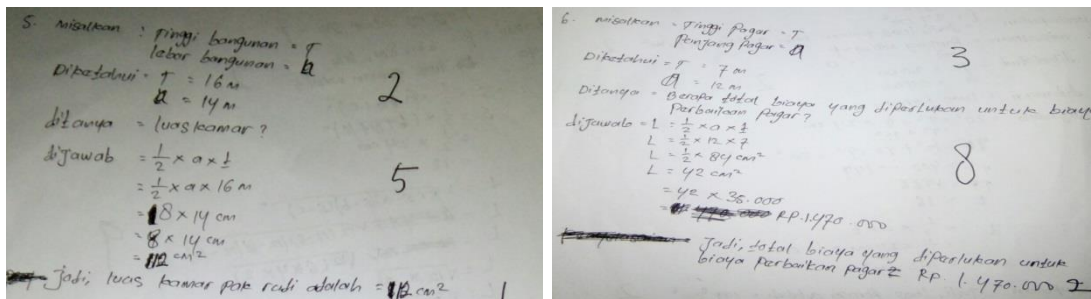 5. Misalkan : Tinggi bangunan = T
lebar bangunan = a
Diketahui = T = 16 m
a = 14 m
2
ditanya = luas kamar ?
dijawab = 1/2 × a × t
= 1/2 × a × 16 m
5
= 8 × 14 cm
= 8 × 14 cm
= 112 cm²
Jadi, luas kamar pak radi adalah = 112 cm²
1
6. Misalkan = Tinggi Pagar = T
Panjang Pagar = a
3
Diketahui = T = 7 m
a = 12 m
Ditanya = Berapa total biaya yang diperlukan untuk biaya
Perbaikan Pagar ?
dijawab = L = 1/2 × a × t
L = 1/2 × 12 × 7
L = 1/2 × 84 cm²
8
L = 42 cm²
= 42 × 35.000
= RP. 1.470.000
Jadi, total biaya yang diperlukan untuk
biaya perbaikan pagar = RP. 1.470.000
2